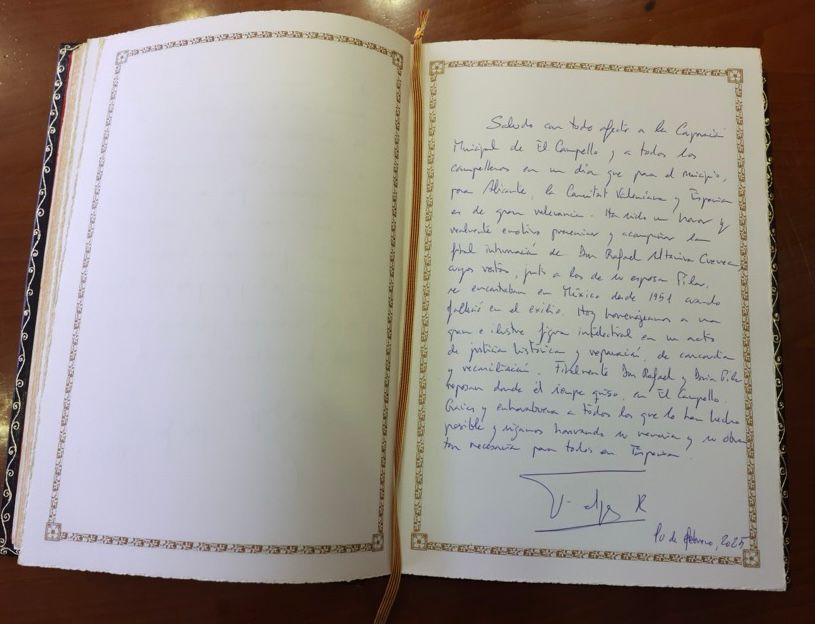 Saludo con todo afecto a la Corporación
Municipal de El Campello y a todos los
campelleros en un día que para el municipio,
para Alicante, la Comitat Valenciana y Espanya
es de gran relevancia. Ha sido un honor y
realmente emotivo presenciar y acompañar la
final inhumación de Don Rafael Altamira Crevea,
cuyos restos, junto a los de su esposa Pilar,
se encontraban en México desde 1951 cuando
falleció en el exilio. Hoy homenajeamos a una
gran e ilustre figura intelectual en un acto
de justicia histórica y reparación, de concordia
y reconciliación. Finalmente Don Rafael y Doña Pilar
reposan donde él siempre quiso, en El Campello.
Gracias y enhorabuena a todos los que lo han hecho
posible y sigamos honrando su memoria y su obra
tan necesaria para todos en Espanya.
R
10 de febrero, 2025